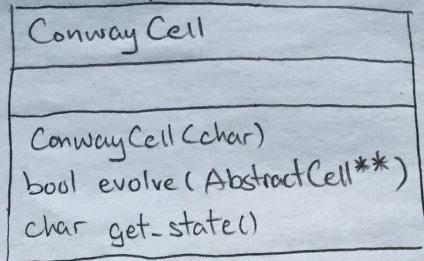 Conway Cell
ConwayCell(char)
bool evolve(AbstractCell**)
char get_state()